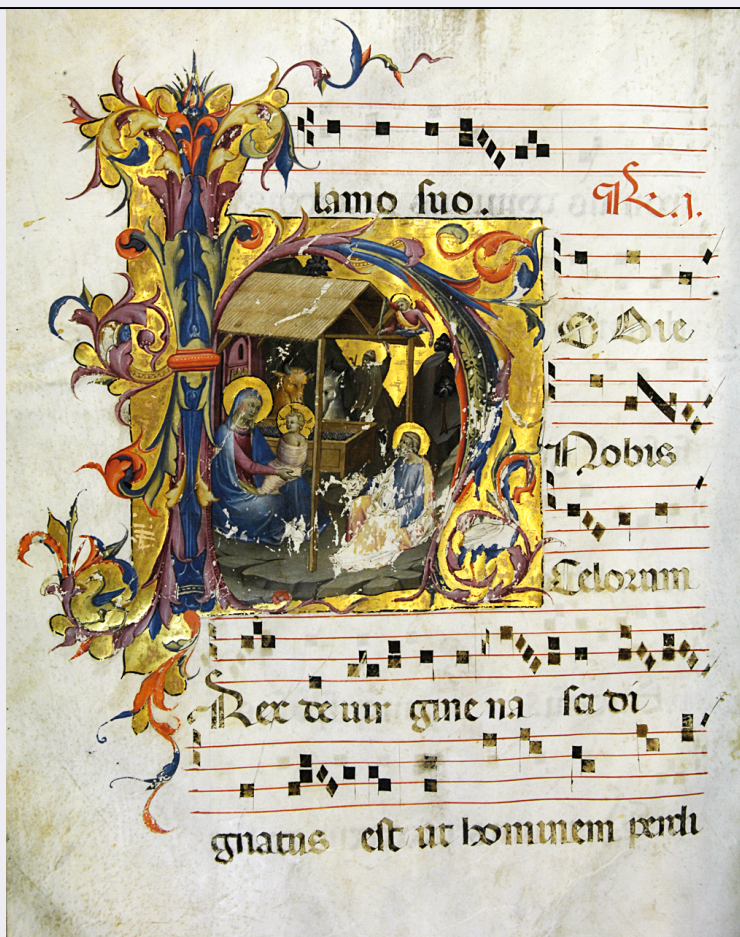 lamo suo. R. j.
HO Die
Nobis
Celorum
Rex de uir gine na sci di
gnatus est ut hominem perdi